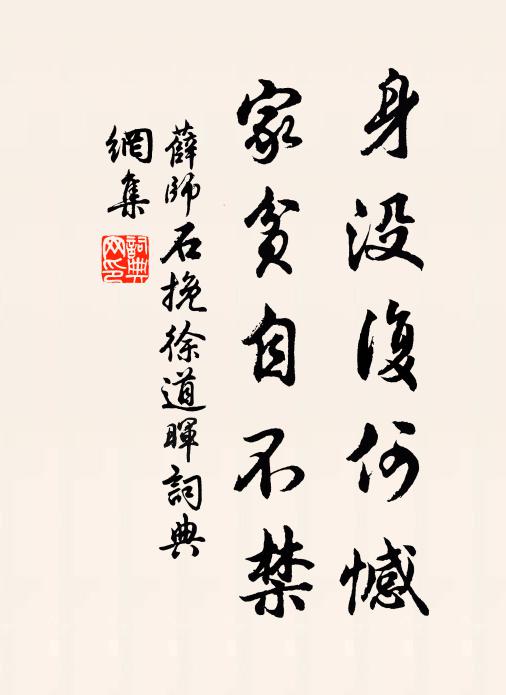 身没復何憾
家貧自不禁
薛師石挽徐道暉詞典
網集
詞典網印